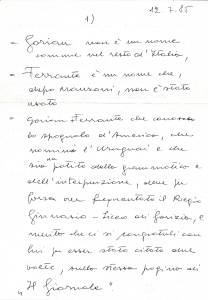 12.7.85
1)
- Goriani non è un nome
comune nel resto d'Italia,
- Ferrante è un nome che,
dopo Manzoni, non è stato
usato
- Goriani Ferrante che conosce
lo spagnolo d'America, che
nomina l'Uruguai e che
sia patito della grammatica e
dell'interpunzione, deve per
forza aver frequentato il Regio
Ginnasio - Liceo di Gorizia, e
mento che ci si congratuli con
lui per esser stato citato due
volte, nella stessa pagina di
"Il Giornale"